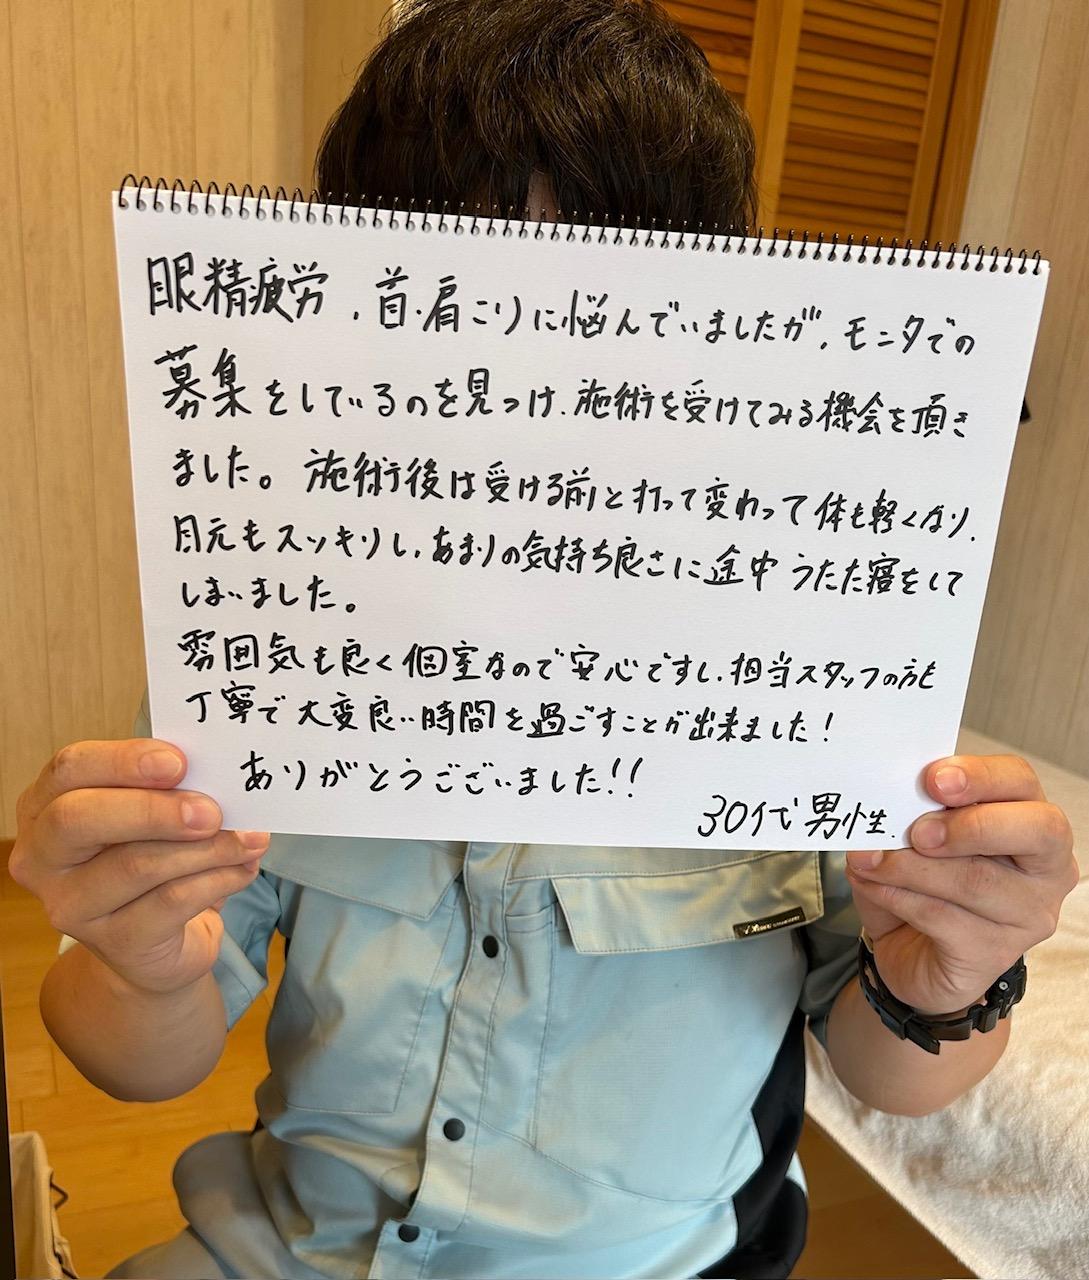 眼精疲労、首・肩こりに悩んでいましたが、モニタでの
募集をしているのを見つけ、施術を受けてみる機会を頂き
ました。施術後は受ける前と打って変わって体も軽くなり、
目元もスッキリし、あまりの気持ち良さに途中うたた寝をして
しまいました。
雰囲気も良く個室なので安心ですし、担当スタッフの方も
丁寧で大変良い時間を過ごすことが出来ました!
ありがとうございました!!
30代男性.